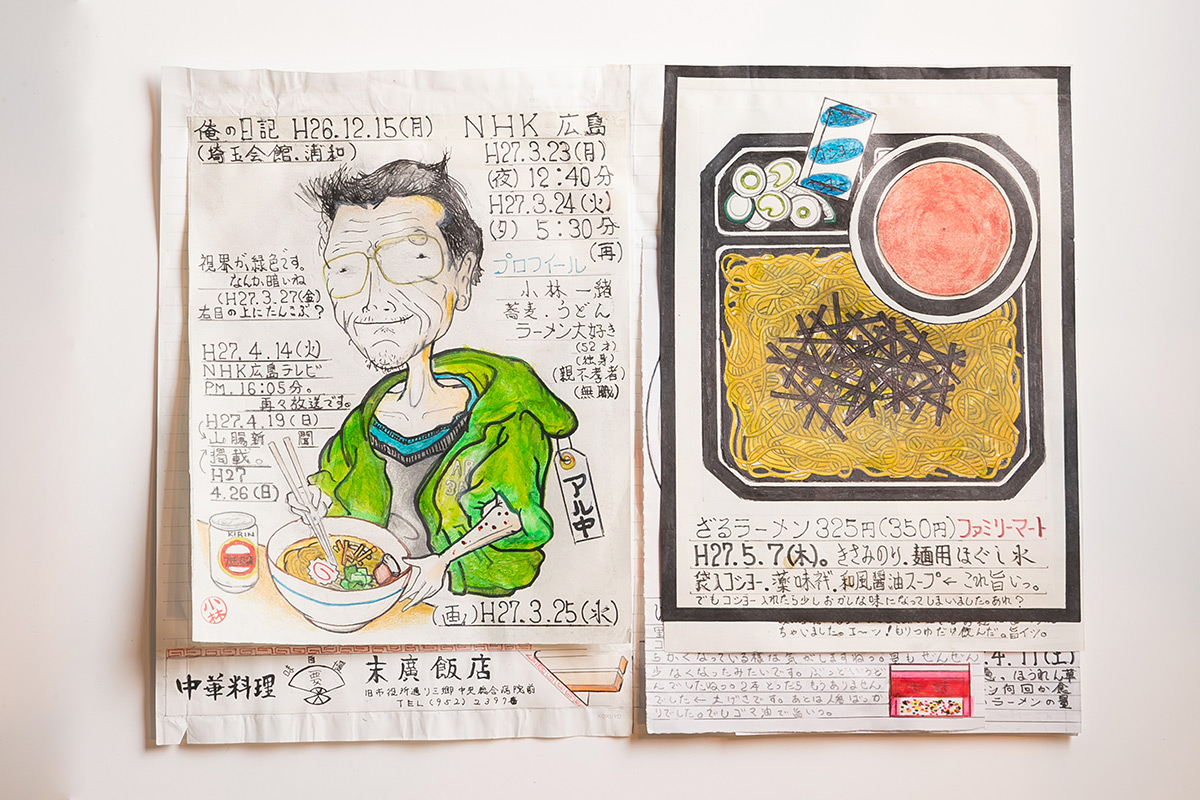 俺の日記 H26.12.15(月)
(埼玉会館.浦和)
NHK 広島
H27.3.23(月)
(夜) 12:40分
H27.3.24(火)
(夕) 5:30分
(再)
プロフィール
小林一緒
蕎麦.うどん
ラーメン大好き
(52才)
(独身)
(親不孝者)
(無職)
視界が、緑色です。
なんか、暗いね
(H27.3.27(金)
右目の上にたんこぶ?
H27.4.14(火)
NHK広島テレビ
PM.16:05分。
再々放送です。
H27.4.19(日)
山陽新聞
掲載。
H27
4.26(日)
アル中
KIRIN
小林
(画)H27.3.25(水)
中華料理
末廣飯店
旧市役所通り三郷中央総合病院前
TEL(952)2397番
ざるラーメン 325円(350円)ファミリーマート
H27.5.7(木)。きざみのり、麺用ほぐし水
袋入コショー、薬味ネギ、和風醤油スープ←これ旨いっ。
でもコショー入れたら少しおかしな味になってしまいました。あれ?
ちゃいました。エーッ!もりつゆだり飲んだ。旨イッ。
4.11(土)
ほうれん草
ン何回か食
ラーメンの量
らかくなっている様な気がしますねっ。
少なくなったみたいです。
んでしたねっ。2年たったらもうありません
でした←大げさです。あとは人参ばっか
りでした。でもゴマ油で旨いっ。